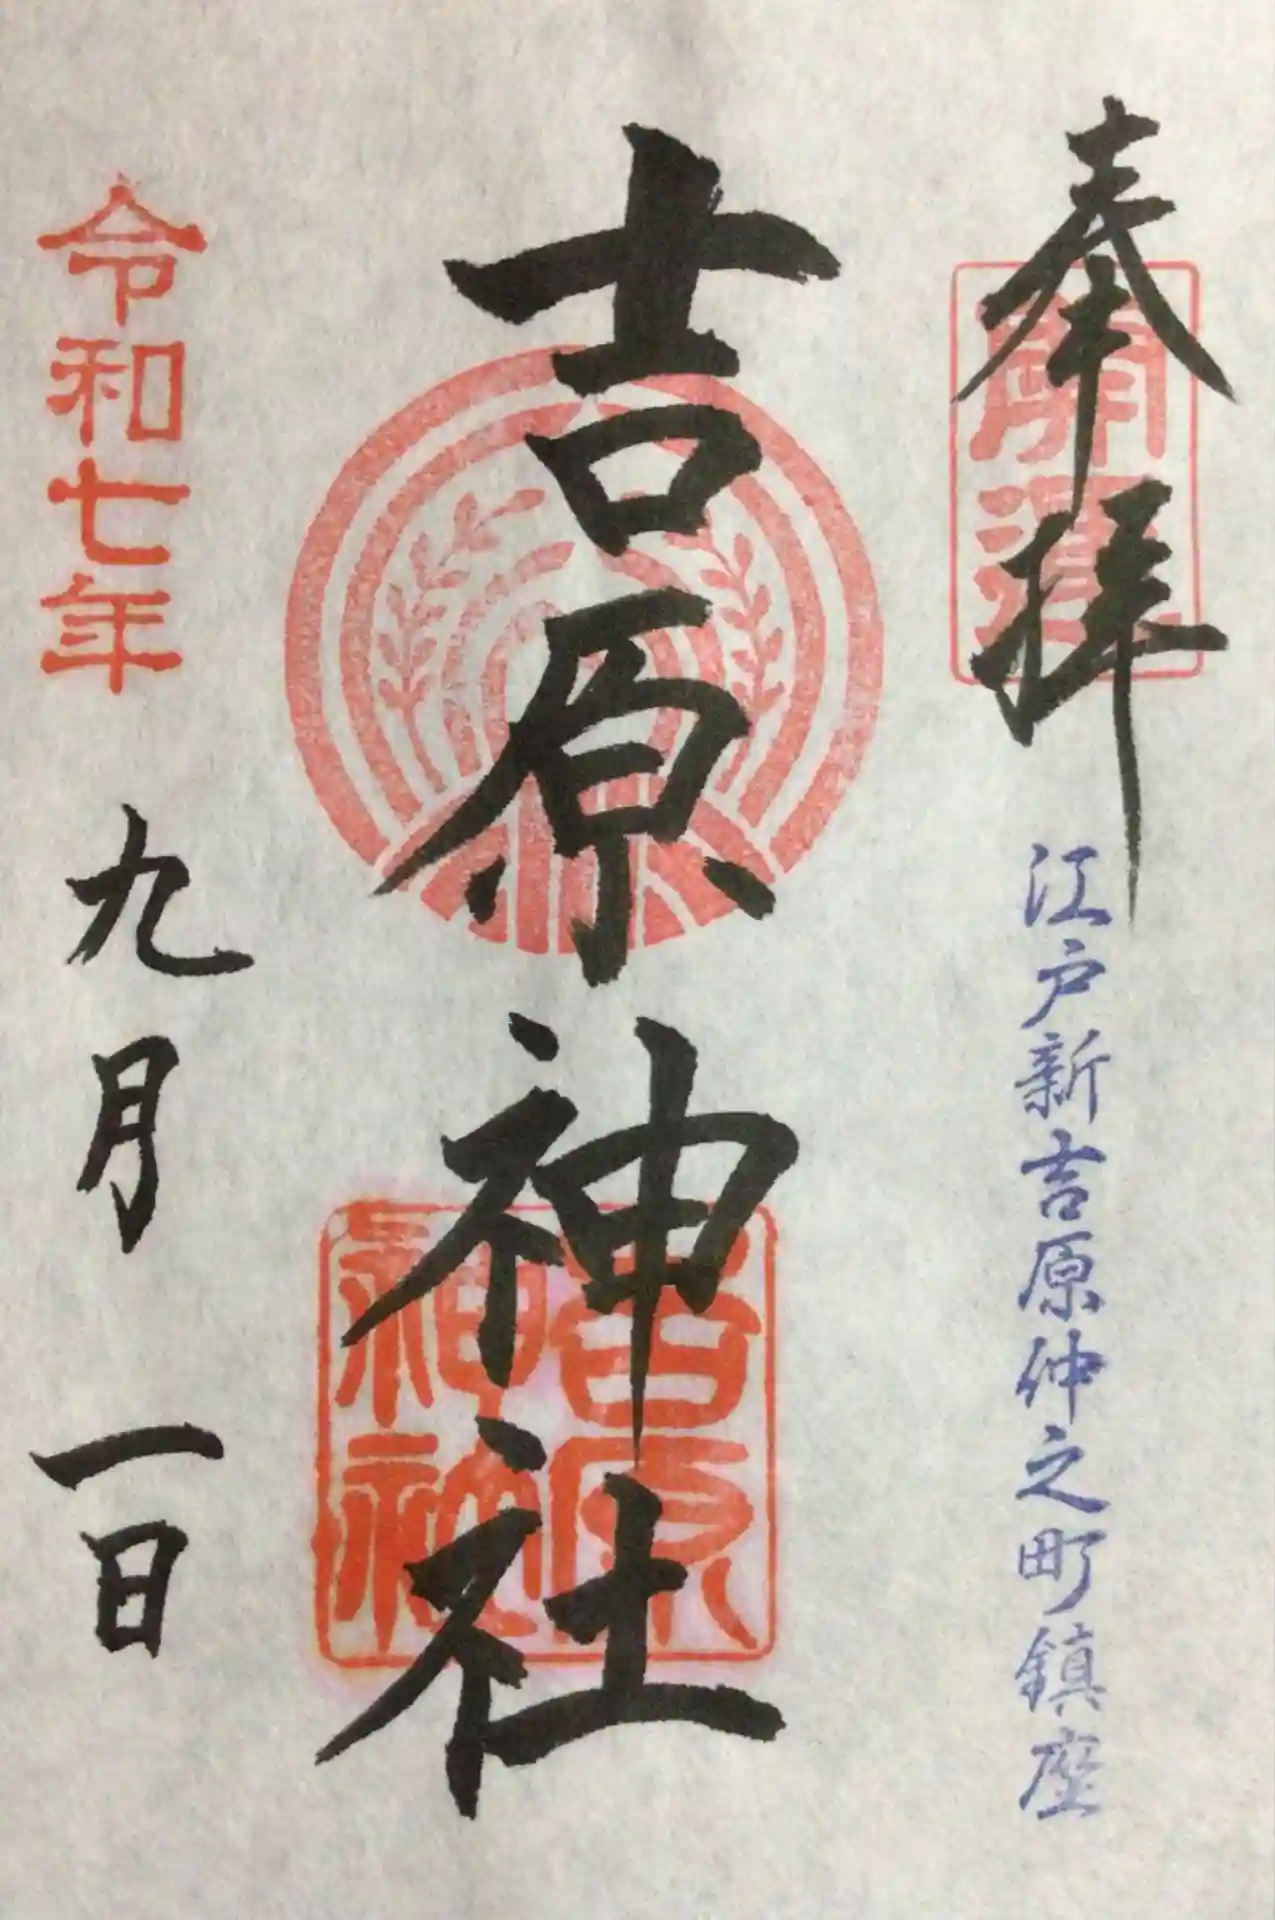 奉拝
開運
江戸新吉原仲之町鎮座
吉原神社
吉原
神社
令和七年
九月一日